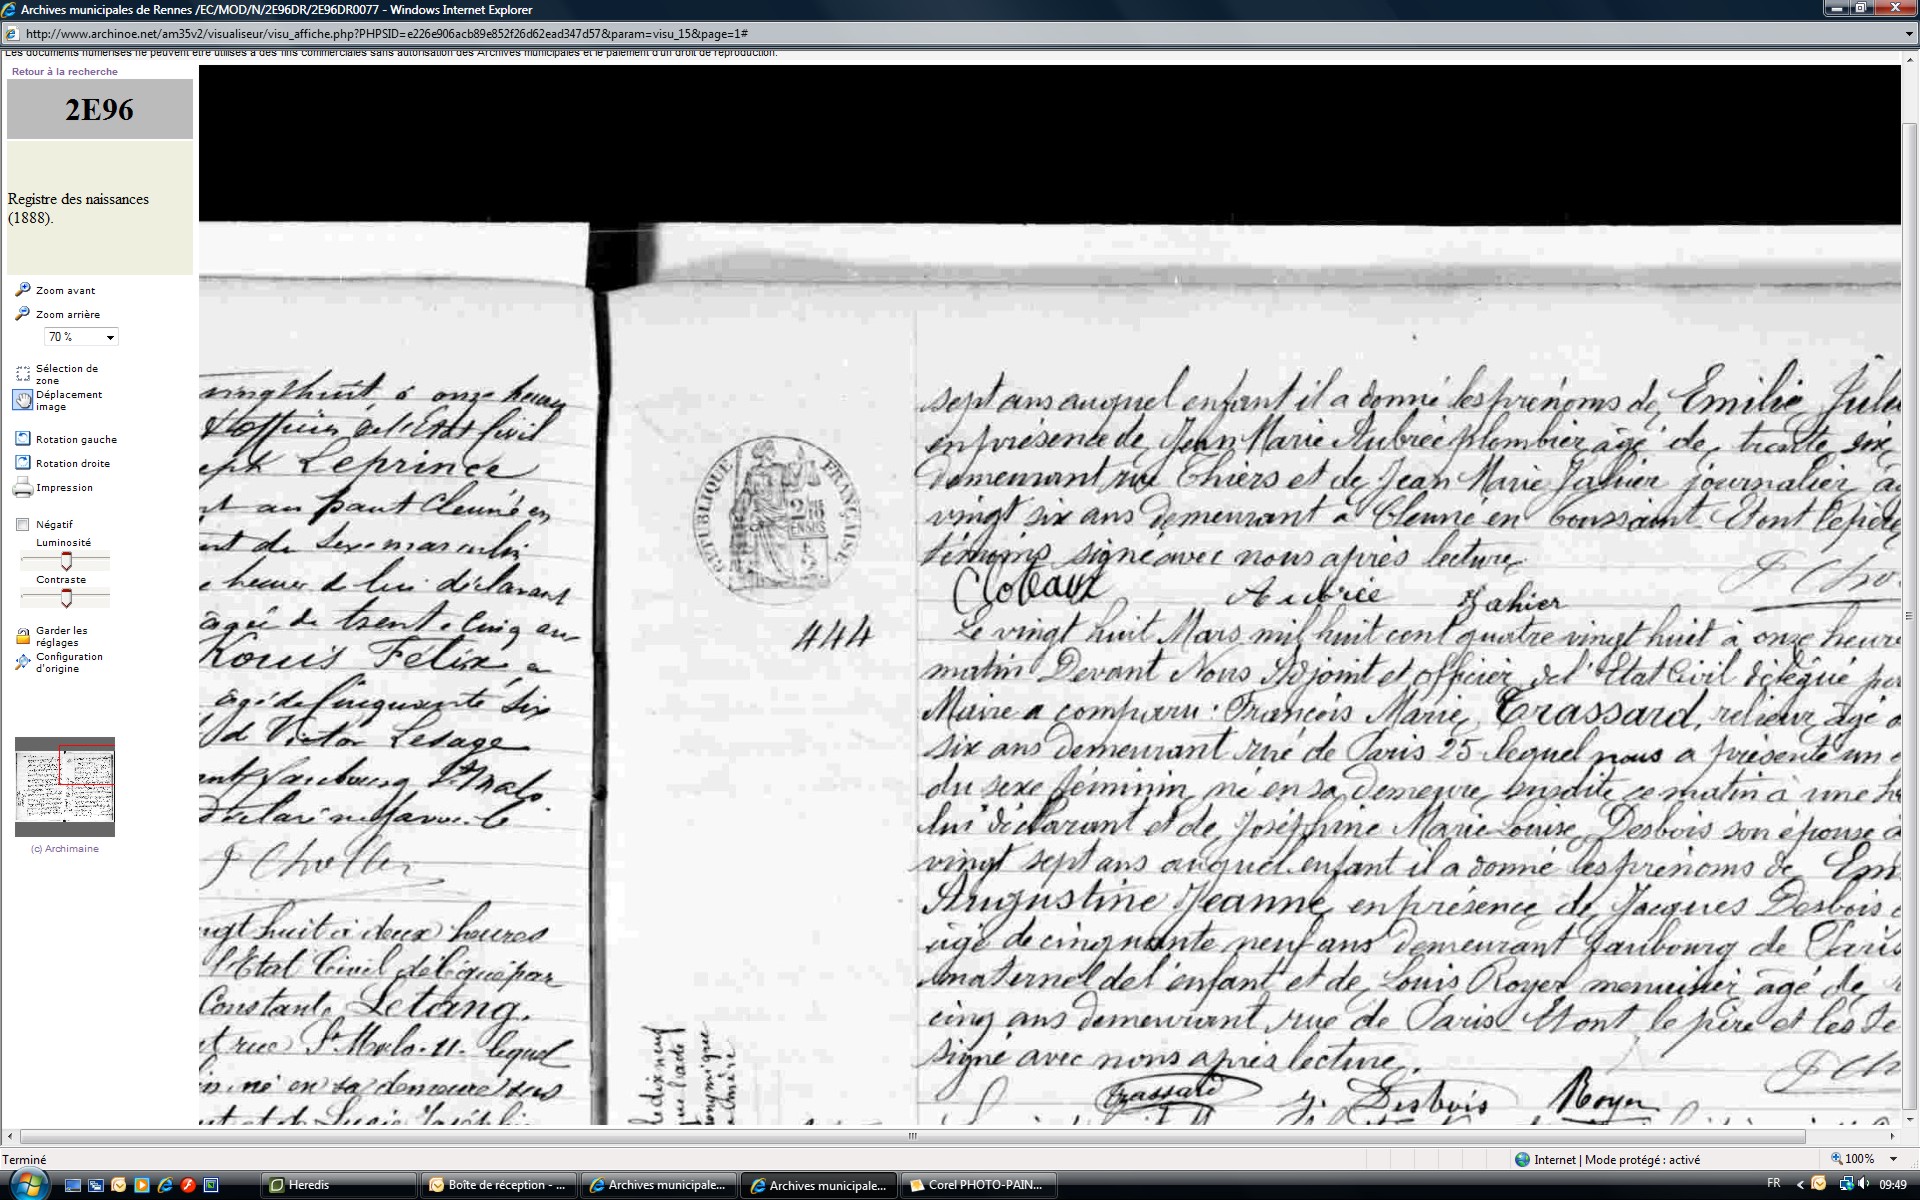 Archives municipales de Rennes /EC/MOD/N/2E96DR/2E96DR0077 - Windows Internet Explorer
http://www.archinoe.net/am35v2/visualiseur/visu_affiche.php?PHPSID=e226e906acb89e852f26d62ead347d57&param=visu_15&page=1#
Les documents numérisés ne peuvent être utilisés à des fins commerciales sans autorisation des Archives municipales et le paiement d'un droit de reproduction.
Retour à la recherche
2E96
Registre des naissances
(1888).
Zoom avant
Zoom arrière
70 %
Sélection de
zone
Déplacement
image
Rotation gauche
Rotation droite
Impression
Négatif
Luminosité
Contraste
Garder les
réglages
Configuration
d'origine
(c) Archimaine
vingt huit à onze heures
d'officier de l'Etat Civil
Leprince
au pont Cleuné en
du sexe masculin
heures de lui déclarant
agée de trente cinq ans
Louis Félix
agé de cinquante six
Victor Lesage
faubourg St Malo
J Chollet
vingt huit à deux heures
l'Etat Civil délégué par
Constant Letang.
rue St Malo 11 lequel
né en sa demeure sus
et de Lucie Joséphine
REPUBLIQUE FRANÇAISE
444
sept ans auquel enfant il a donné les prénoms de Emilie
en présence de Jean Marie Aubrée plombier âgé de trente six
demeurant rue Thiers et de Jean Marie Jahier journalier
vingt six ans demeurant à Cleuné en Toussaint Et ont le père
témoins signé avec nous après lecture
Cloteaux Aubrée Jahier
Le vingt huit Mars mil huit cent quatre vingt huit à onze heures
matin Devant Nous Adjoint et officier de l'Etat Civil délégué par
Maire a comparu : François Marie Trassard, relieur âgé
six ans demeurant rue de Paris 25 lequel nous a présenté un
du sexe féminin né en sa demeure susdite ce matin à une
lui déclarant et de Joséphine Marie Louise Desbois son épouse
vingt sept ans auquel enfant il a donné les prénoms de Em
Augustine Jeanne en présence de Jacques Desbois
âgé de cinquante neuf ans demeurant faubourg de Paris
maternel de l'enfant et de Louis Royer menuisier âgé de
cinq ans demeurant rue de Paris Et ont le père et les te
signé avec nous après lecture.
Trassard J. Desbois Royer
Terminé
Internet | Mode protégé : activé
100%
Heredis
Boîte de réception - ...
Archives municipale...
Archives municipale...
Corel PHOTO-PAIN...
FR
09:49